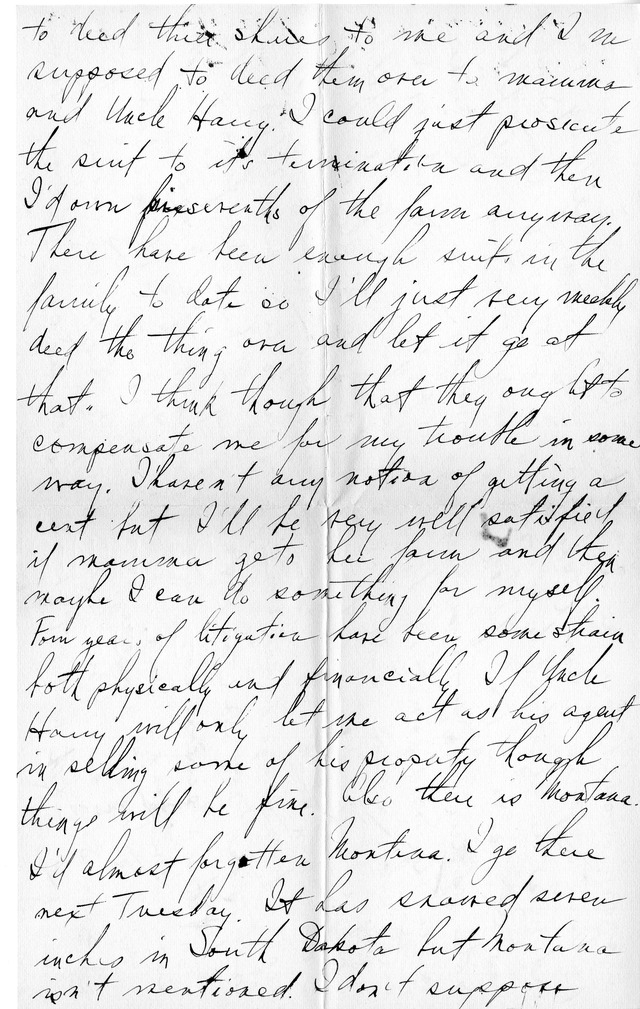 to deed their shares to me and I'm
supposed to deed them over to mamma
and Uncle Harry. I could just prosecute
the suit to it's termination and then
I'd own fivesevenths of the farm anyway.
There have been enough suits in the
family to date so I'll just very meekly
deed the thing over and let it go at
that. I think though that they ought to
compensate me for my trouble in some
way. I haven't any notion of getting a
cent but I'll be very well satisfied
if mamma gets her farm and then
maybe I can do something for myself.
Four years of litigation have been some strain
both physically and financially. If Uncle
Harry will only let me act as his agent
in selling some of his property though
things will be fine. Also there is Montana.
I'd almost forgotten Montana. I go there
next Tuesday. It has snowed seven
inches in South Dakota but Montana
isn't mentioned. I don't suppose